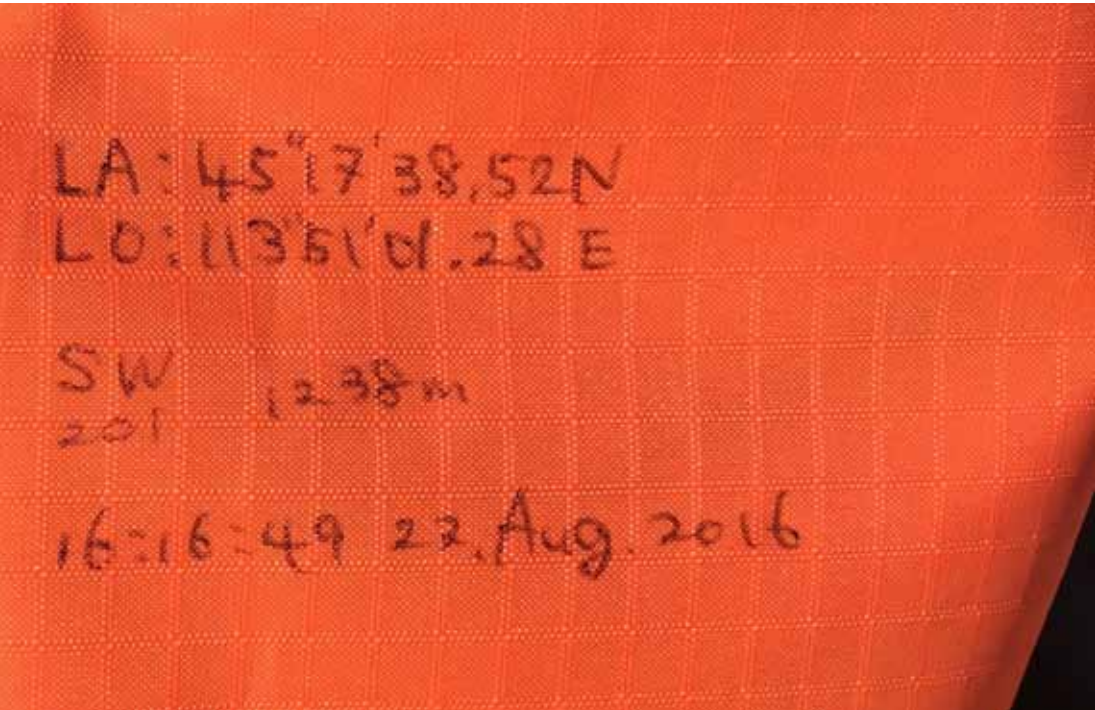 LA: 45"17'38.52N
LO: 113"51'01.28 E
SW
201 1238m
16:16:49 22. Aug. 2016